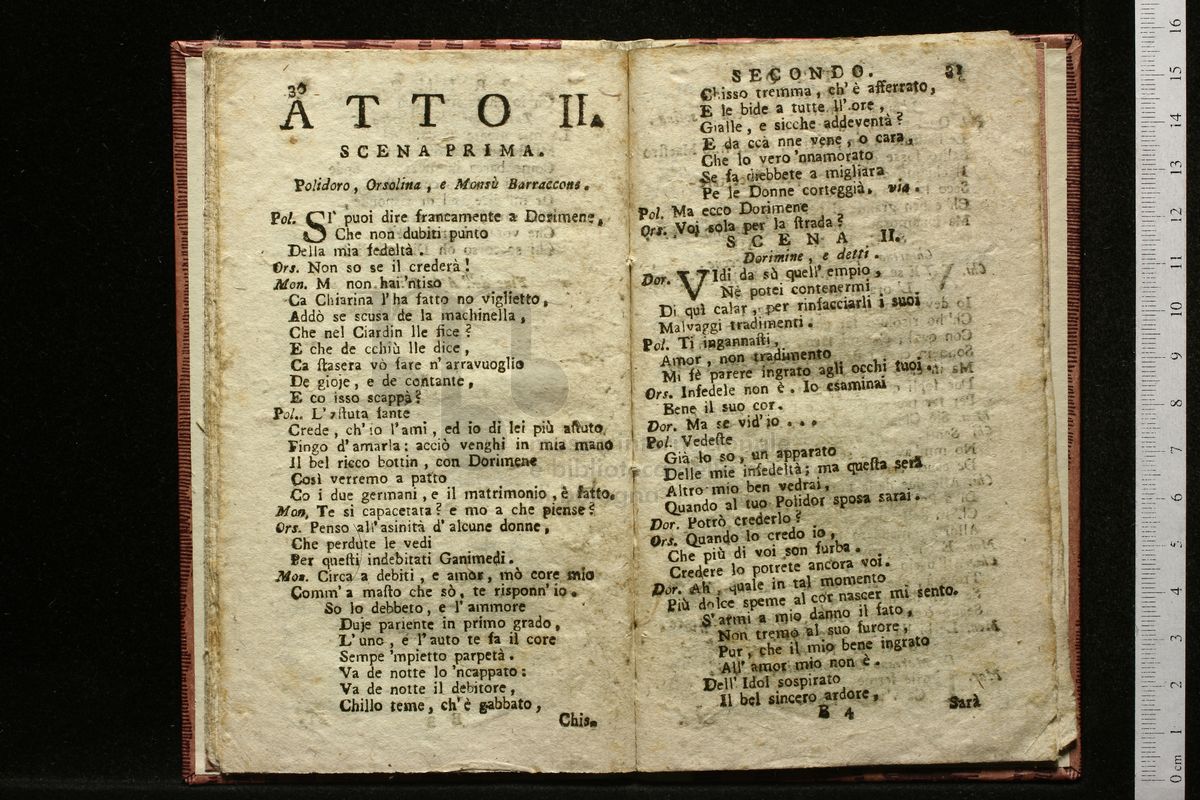 30
ATTO II.
SCENA PRIMA.
Polidoro, Orsolina, e Monsù Barraccone.
Pol. SI' puoi dire francamente a Dorimene,
Che non dubiti punto
Della mia fedeltà.
Ors. Non so se il crederà!
Mon. M non hai 'ntiso
Ca Chiarina l'ha fatto no viglietto,
Addò se scusa de la machinella,
Che nel Ciardin lle fice?
E che de cchiù lle dice,
Ca stasera vò fare n'arravuoglio
De gioje, e de contante,
E co isso scappà?
Pol. L'astuta fante
Crede, ch'io l'ami, ed io di lei più astuto,
Fingo d'amarla: acciò venghi in mia mano
Il bel ricco bottin, con Dorimene
Così verremo a patto
Co i due germani, e il matrimonio, è fatto.
Mon, Te si capacetata? e mo a che piense?
Ors. Penso all'asinità d'alcune donne,
Che perdute le vedi
Per questi indebitati Ganimedi.
Mon. Circa a debiti, e amor, mò core mio
Comm'a masto che sò, te risponn'io.
So lo debbeto, e l'ammore
Duje pariente in primo grado,
L'uno, e l'auto te fa il core
Sempe 'mpietto parpetà.
Va de notte lo 'ncappato:
Va de notte il debitore,
Chillo teme, ch'è gabbato,
Chis-
SECONDO. 31
Chisso tremma, ch'è afferrato,
E le bide a tutte ll'ore,
Gialle, e sicche addeventà?
E da ccà nne vene, o cara,
Che lo vero 'nnamorato
Se fa diebbete a migliara
Pe le Donne corteggià. via.
Pol. Ma ecco Dorimene
Ors. Voi sola per la strada?
SCENA II.
Dorimine, e detti.
Dor. VIdi da sù quell'empio,
Nè potei contenermi
Di quì calar, per rinfacciarli i suoi
Malvaggi tradimenti.
Pol. Ti ingannasti,
Amor, non tradimento
Mi fè parere ingrato agli occhi tuoi.
Ors. Infedele non è. Io esaminai
Bene il suo cor.
Dor. Ma se vid'io...
Pol. Vedeste
Già lo so, un apparato
Delle mie infedeltà; ma questa sera
Altro mio ben vedrai,
Quando al tuo Polidor sposa sarai.
Dor. Potrò crederlo?
Ors. Quando lo credo io,
Che più di voi son furba.
Credere lo potrete ancora voi.
Dor. Ah, quale in tal momento
Più dolce speme al cor nascer mi sento.
S'armi a mio danno il fato,
Non tremo al suo furore,
Pur, che il mio bene ingrato
All'amor mio non è.
Dell'Idol sospirato
Il bel sincero ardore,
B 4 Sarà